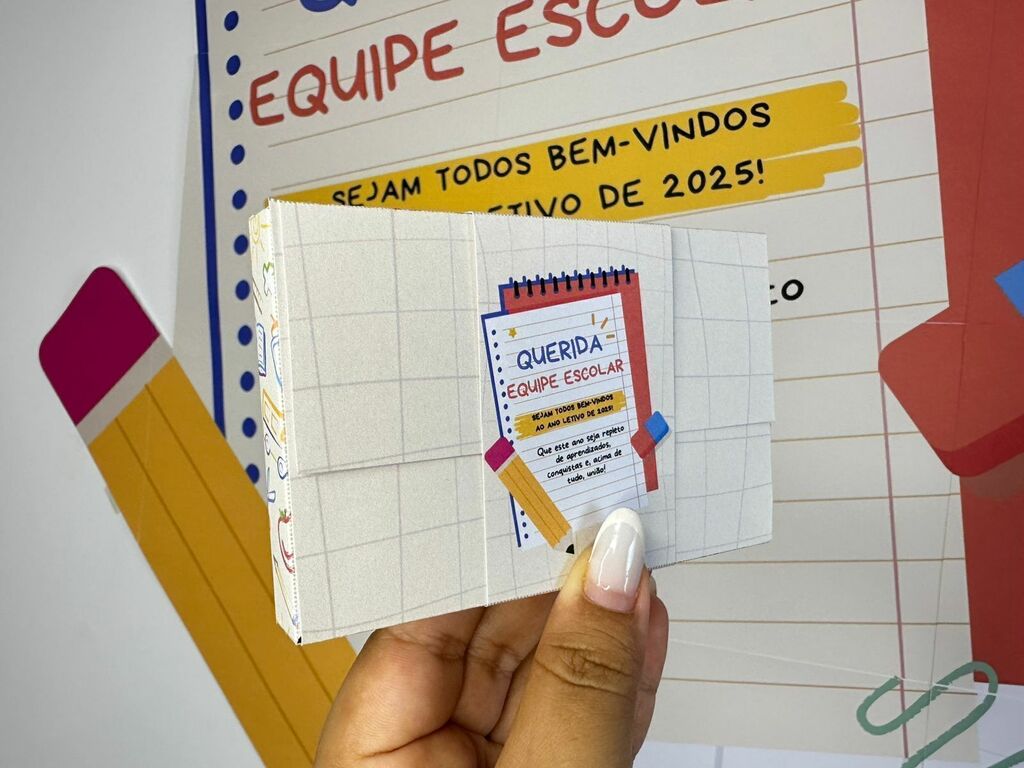 EQUIPE ESCOL
SEJAM TODOS BEM-VINDOS
TIVO DE 2025!
CO
QUERIDA
EQUIPE ESCOLAR
SEJAM TODOS BEM-VINDOS
AO ANO LETIVO DE 2025!
Que este ano seja repleto
de aprendizados,
conquistas e, acima de
tudo, união!